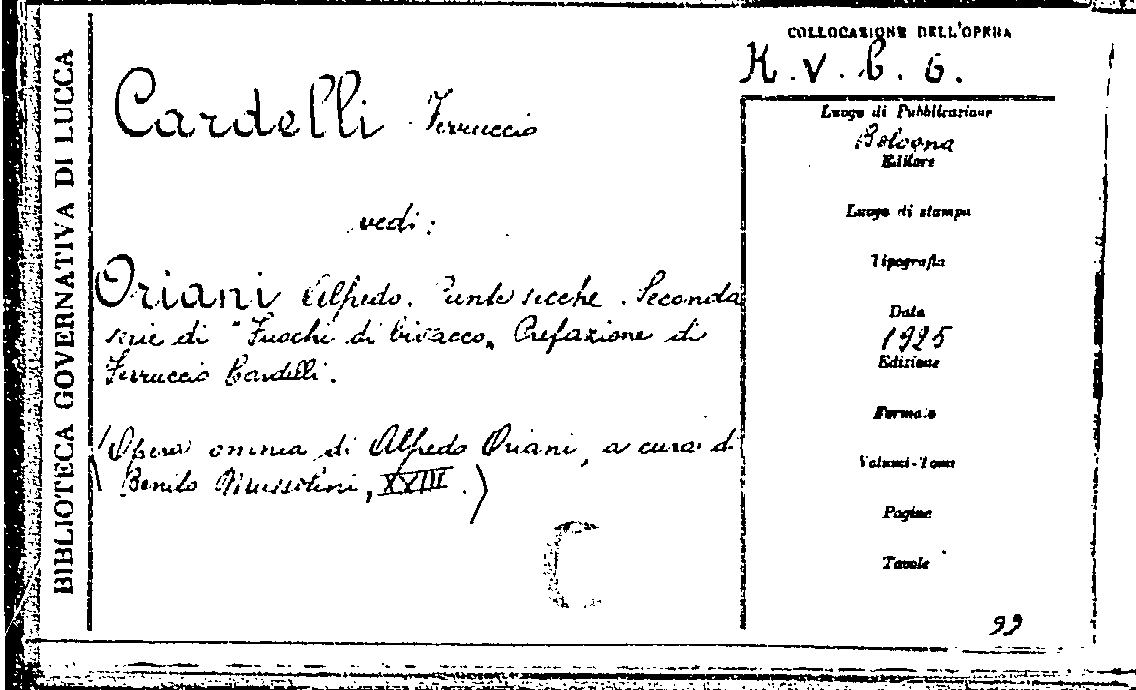 BIBLIOTECA GOVERNATIVA DI LUCCA
Cardelli Ferruccio
vedi:
Oriani Alfredo. Punte secche. Seconda
serie di "Fuochi di bivacco„ Prefazione di
Ferruccio Cardelli.
(Opera omnia di Alfredo Oriani, a cura di
Benito Mussolini, XXIII.)
C
COLLOCAZIONE DELL'OPERA
K. V. b. 6.
Luogo di Pubblicazione
Bologna
Editore
Luogo di stampa
Tipografia
Data
1925
Edizione
Formato
Volumi-Tomi
Pagine
Tavole
99